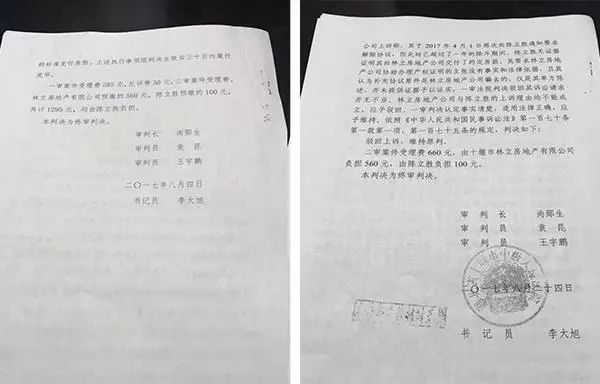 的标准支付房租。上述执行事项限判决生效后三十日内履行
完毕。
一审案件受理费585元,反诉费50元,二审案件受理费,
林立房地产有限公司预缴的560元,陈立胜预缴的100元,
共计1295元,均由陈立胜负担。
本判决为终审判决。
审判长 尚郧生
审判员 袁昆
审判员 王宇鹏
二〇一七年八月四日
书记员 李大旭
公司上诉称,其于2017年4月1日再次向陈立胜通知要求
解除协议,但此时已超过了一年的除斥期间,陈立胜无证据
证明其向林立房地产公司交付了约定房款,其要求林立房地
产公司协助办理产权证明的主张没有事实和法律依据,且其
认为补充协议案件是林立房地产公司骗出的,仅是其单方陈
述,并未提供证据予以证实,一审法院判决驳回其诉讼请求
并无不当。林立房地产公司与陈立胜的上诉理由均不能成
立,应予驳回。一审判决认定事实清楚,适用法律正确,应
予维持。依照《中华人民共和国民事诉讼法》第一百七十条
第一款第一项、第一百七十五条的规定,判决如下:
驳回上诉,维持原判。
二审案件受理费660元,由十堰市林立房地产有限公司
负担560元,由陈立胜负担100元。
本判决为终审判决。
审判长 尚郧生
审判员 袁昆
审判员 王宇鹏
〇一七年八月二十四日
书记员 李大旭